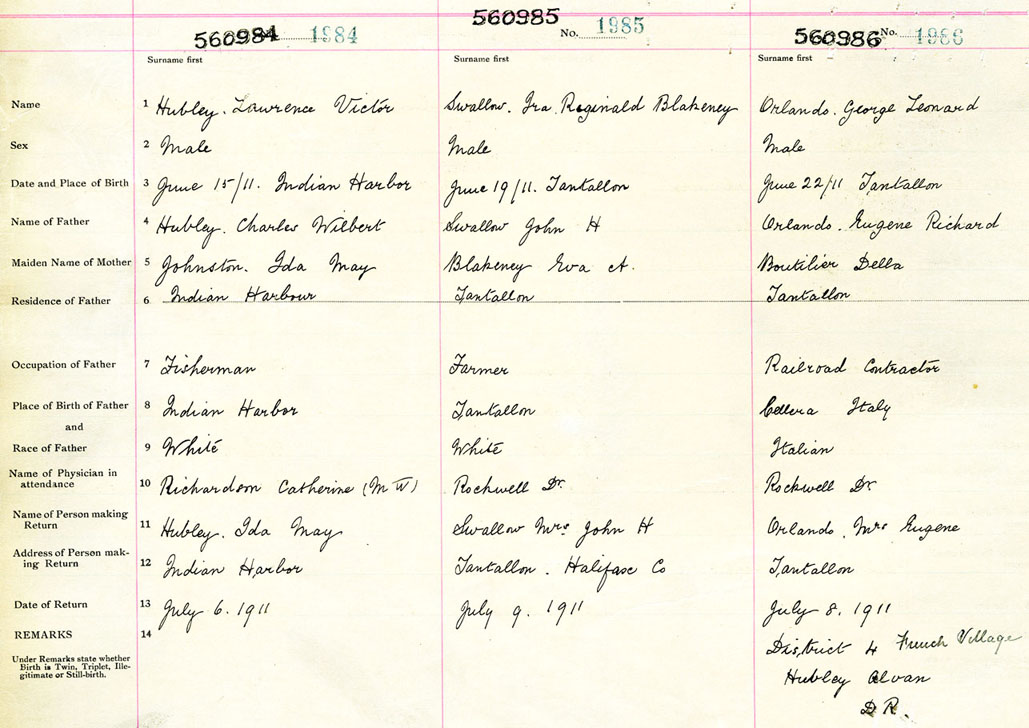 560984 1984
560985 No. 1985
560986 No. 1986
Surname first Surname first Surname first
Name 1 Hubley. Lawrence Victor Swallow. Ira Reginald Blakeney Orlando. George Leonard
Sex 2 Male Male Male
Date and Place of Birth 3 June 15/11. Indian Harbor June 19/11. Tantallon June 22/11 Tantallon
Name of Father 4 Hubley. Charles Wilbert Swallow John H Orlando. Eugene Richard
Maiden Name of Mother 5 Johnston. Ida May Blakeney Eva A. Boutilier Della
Residence of Father 6 Indian Harbour Tantallon Tantallon
Occupation of Father 7 Fisherman Farmer Railroad Contractor
Place of Birth of Father 8 Indian Harbor Tantallon Italy
and
Race of Father 9 White White Italian
Name of Physician in
attendance 10 Richardson Catherine (M W) Rockwell Dr. Rockwell Dr
Name of Person making
Return 11 Hubley. Ida May Swallow Mrs John H Orlando. Mrs Eugene
Address of Person mak-
ing Return 12 Indian Harbor Tantallon. Halifax Co Tantallon
Date of Return 13 July 6. 1911 July 9. 1911 July 8. 1911
REMARKS 14
Under Remarks state whether
Birth is Twin, Triplet, Ille-
gitimate or Still-birth.
District 4 French Village
Hubley Alvan
D R.